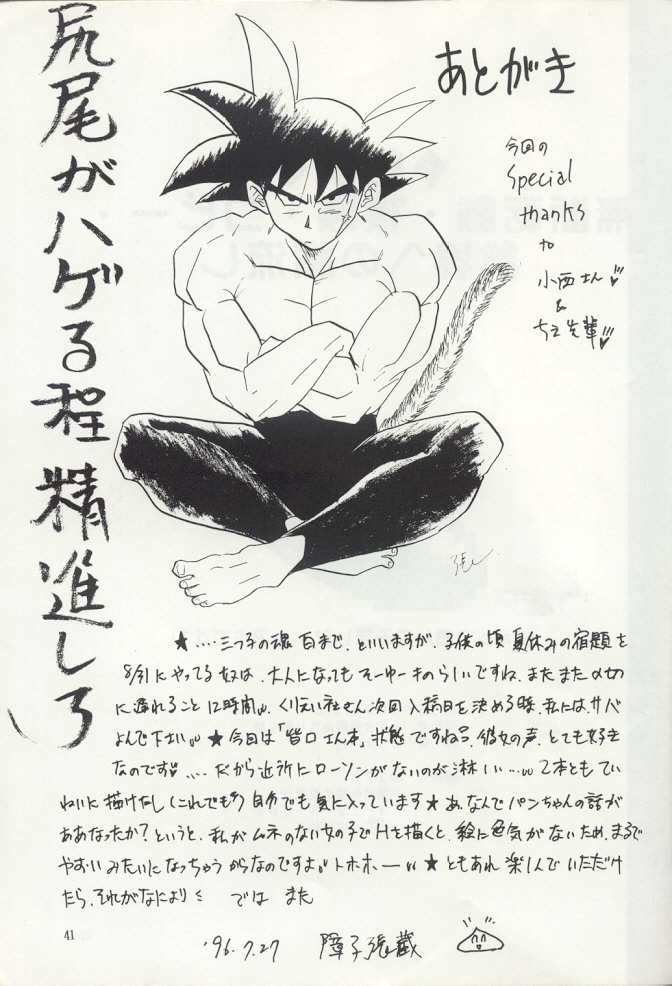 尻尾がハゲる程精進しろ
あとがき
今回の
Special
thanks
to
小西さん
&
先輩
★‥‥三つ子の魂百まで、といいますが、子供の頃夏休みの宿題を
8/31にやってる奴は、大人になってもそーゆーものらしいですね。またまた〆切
に遅れること12時間。くりえい社さん次回入稿日を決める時、私には、サバ
よんで下さい。★今日は「皆口さん本」状態ですね。彼女の声、とても好き
なのです‥‥だから近所にローソンがないのが淋しい‥‥。2本ともてい
ねいに描けたし(これでも)自分でも気に入っています★あ、なんでパンちゃんの話が
ああなったか?というと、私がムネのない女の子でHを描くと、絵に色気がないため、まるで
やおいみたいになっちゃうからなのですよ。トホホー ★ともあれ楽しんでいただけ
たら、それがなにより では また
41
'96.7.27 障子張蔵